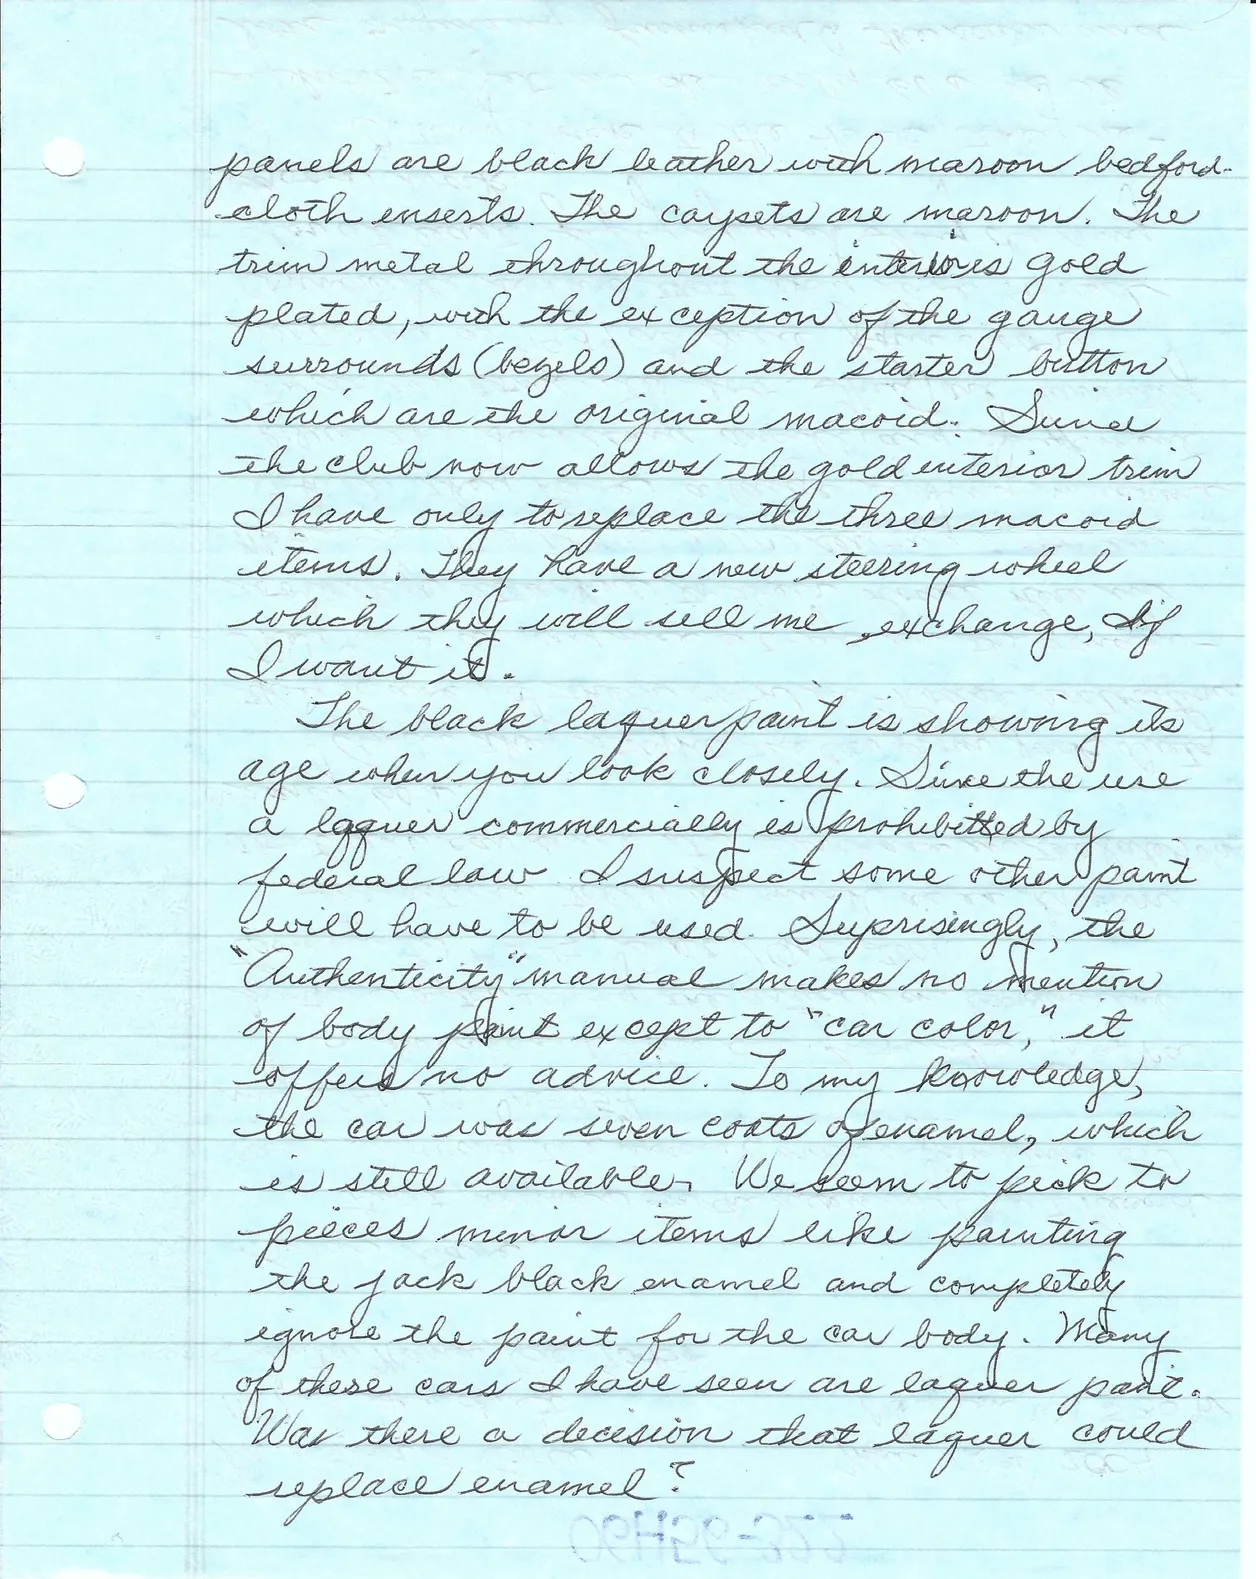 panels are black leather with maroon bedford-
cloth inserts. The carpets are maroon. The
trim metal throughout the interior is gold
plated, with the exception of the gauge
surrounds (bezels) and the starter button
which are the original macoid. Since
the club now allows the gold interior trim
I have only to replace the three macoid
items. They have a new steering wheel
which they will sell me exchange, If
I want it.
The black laquer paint is showing its
age when you look closely. Since the use
a laquer commercially is prohibitted by
federal law I suspect some other paint
will have to be used. Suprisingly, the
"Authenticity" manual makes no mention
of body paint except to "car color," it
offers no advice. To my knowledge,
the car was seven coats of enamel, which
is still available. We seem to pick to
pieces minor items like painting
the jack black enamel and completely
ignore the paint for the car body. Many
of these cars I have seen are laquer paint.
Was there a decision that laquer could
replace enamel?